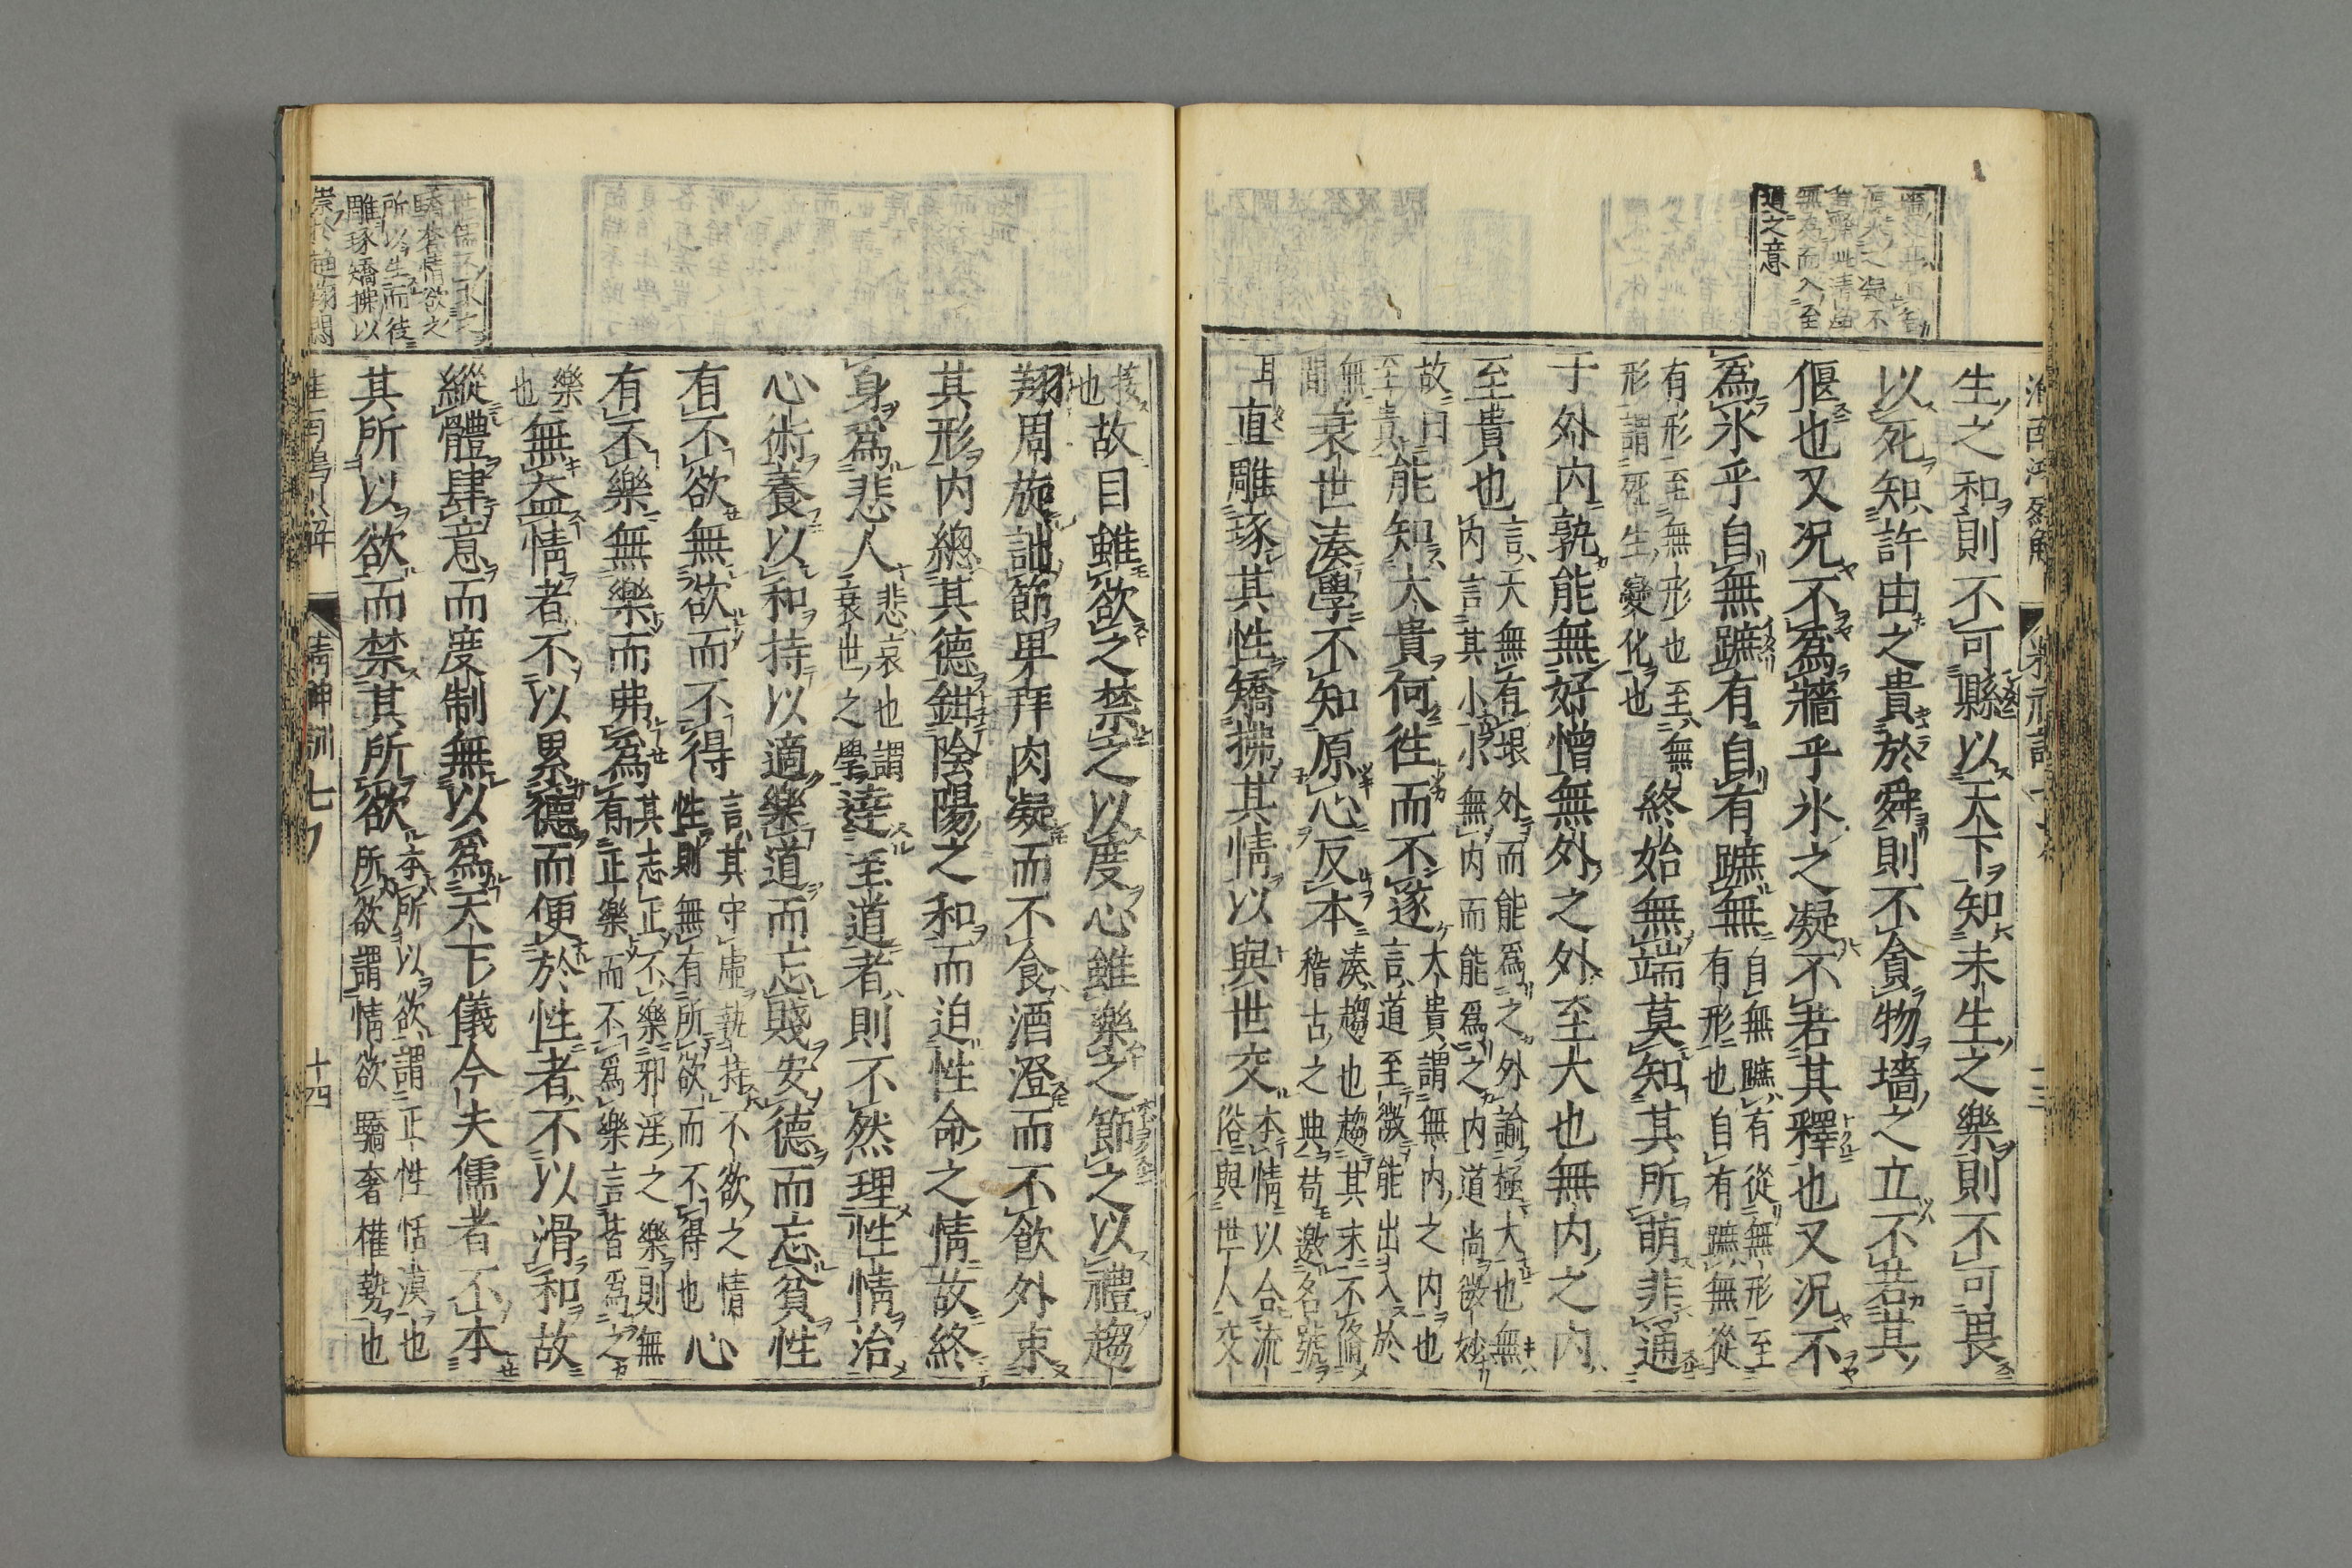 道之意
生之和則不可縣以天下知未生之樂則不可畏
以死知許由之貴於舜則不貪物墻之立不若其
偃也又況不爲牆乎氷之凝不若其釋也又況不
爲氷乎自無蹠有自有蹠無
自無蹠有從無形至
有形也自有蹠無從
有形至無形也至無
形謂死生變化也
終始無端莫知其所萌非通
于外内孰能無好憎無外之外至大也無内之内
至貴也
言天無有垠外而能爲之外諭極大也無
内言其小小無内而能爲之内道尚微妙
故曰
至貴
能知大貴何徃而不遂
大貴謂無内之内也
言道至微能出入於
無
間
衰世湊學不知原心反本
湊趨也趨其末不脩
稽古之典苟邀名號
耳
直雕琢其性矯拂其情以與世交
本情以合流
俗與世人交
接
也
故目雖欲之禁之以度心雖樂之節之以禮趨
翔周旋詘節畢拜肉凝而不食酒澄而不飲外束
其形内總其德鉗陰陽之和而迫性命之情故終
身爲悲人
悲哀也謂
衰世之學
達至道者則不然理性情治
心術養以和持以適樂道而忘賤安德而忘貧性
有不欲無欲而不得
言其守虛執持不欲之情
性則無有所欲而不得也
心
有不樂無樂而弗爲
其志正不樂邪淫之樂則無
有正樂而不爲樂言皆爲之
樂
也
無益情者不以累德而便於性者不以滑和故
縱體肆意而度制無以爲天下儀今夫儒者不本
其所以欲而禁其所欲
本所以欲謂正性恬漠也
所欲謂情欲驕奢權勢也
十四
驕奢情欲之
所以生而徒
雕琢矯拂以